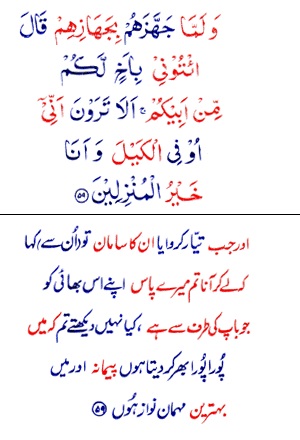 وَلَمَّا جَهَّزَهُمْ بِجَهَازِهِمْ قَالَ
ائْتُوْنِيْ بِاَخٍ لَّكُمْ
مِّنْ اَبِيْكُمْ ۚ اَلَا تَرَوْنَ اَنِّيْۤ
اُوْفِي الْكَيْلَ وَ اَنَا
خَيْرُ الْمُنْزِلِيْنَ ﴿۵۹﴾
اور جب تیّار کروایا ان کا سامان تو اُن سے کہا
کہ لے کر آنا تم میرے پاس اپنے اس بھائی کو
جو باپ کی طرف سے ہے ، کیا نہیں دیکھتے تم کہ میں
پُورا پُورا بھر کر دیتا ہوں پیمانہ اور میں
بہترین مہمان نواز ہُوں ﴿۵۹﴾